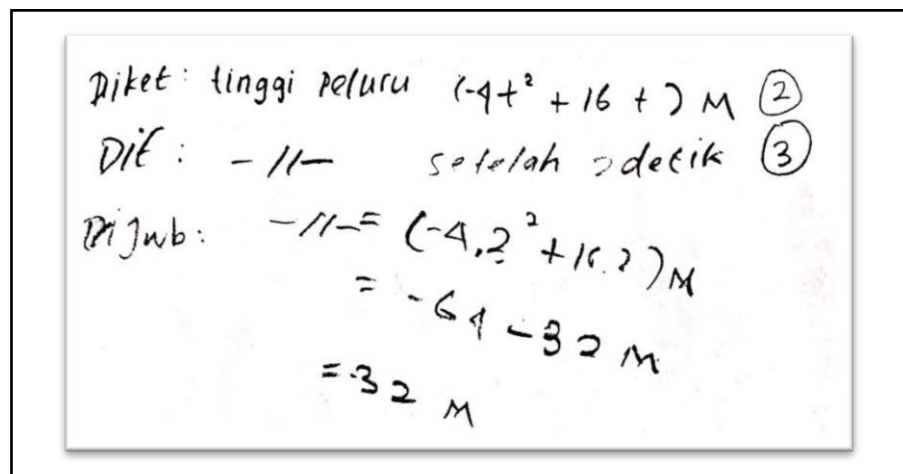 Diket: tinggi peluru (-4t² + 16 t) M ②
Dit: -//- setelah 2 detik ③
Dijwb: -//- = (-4.2² + 16.2) M
= -64 - 32 M
= 32 M